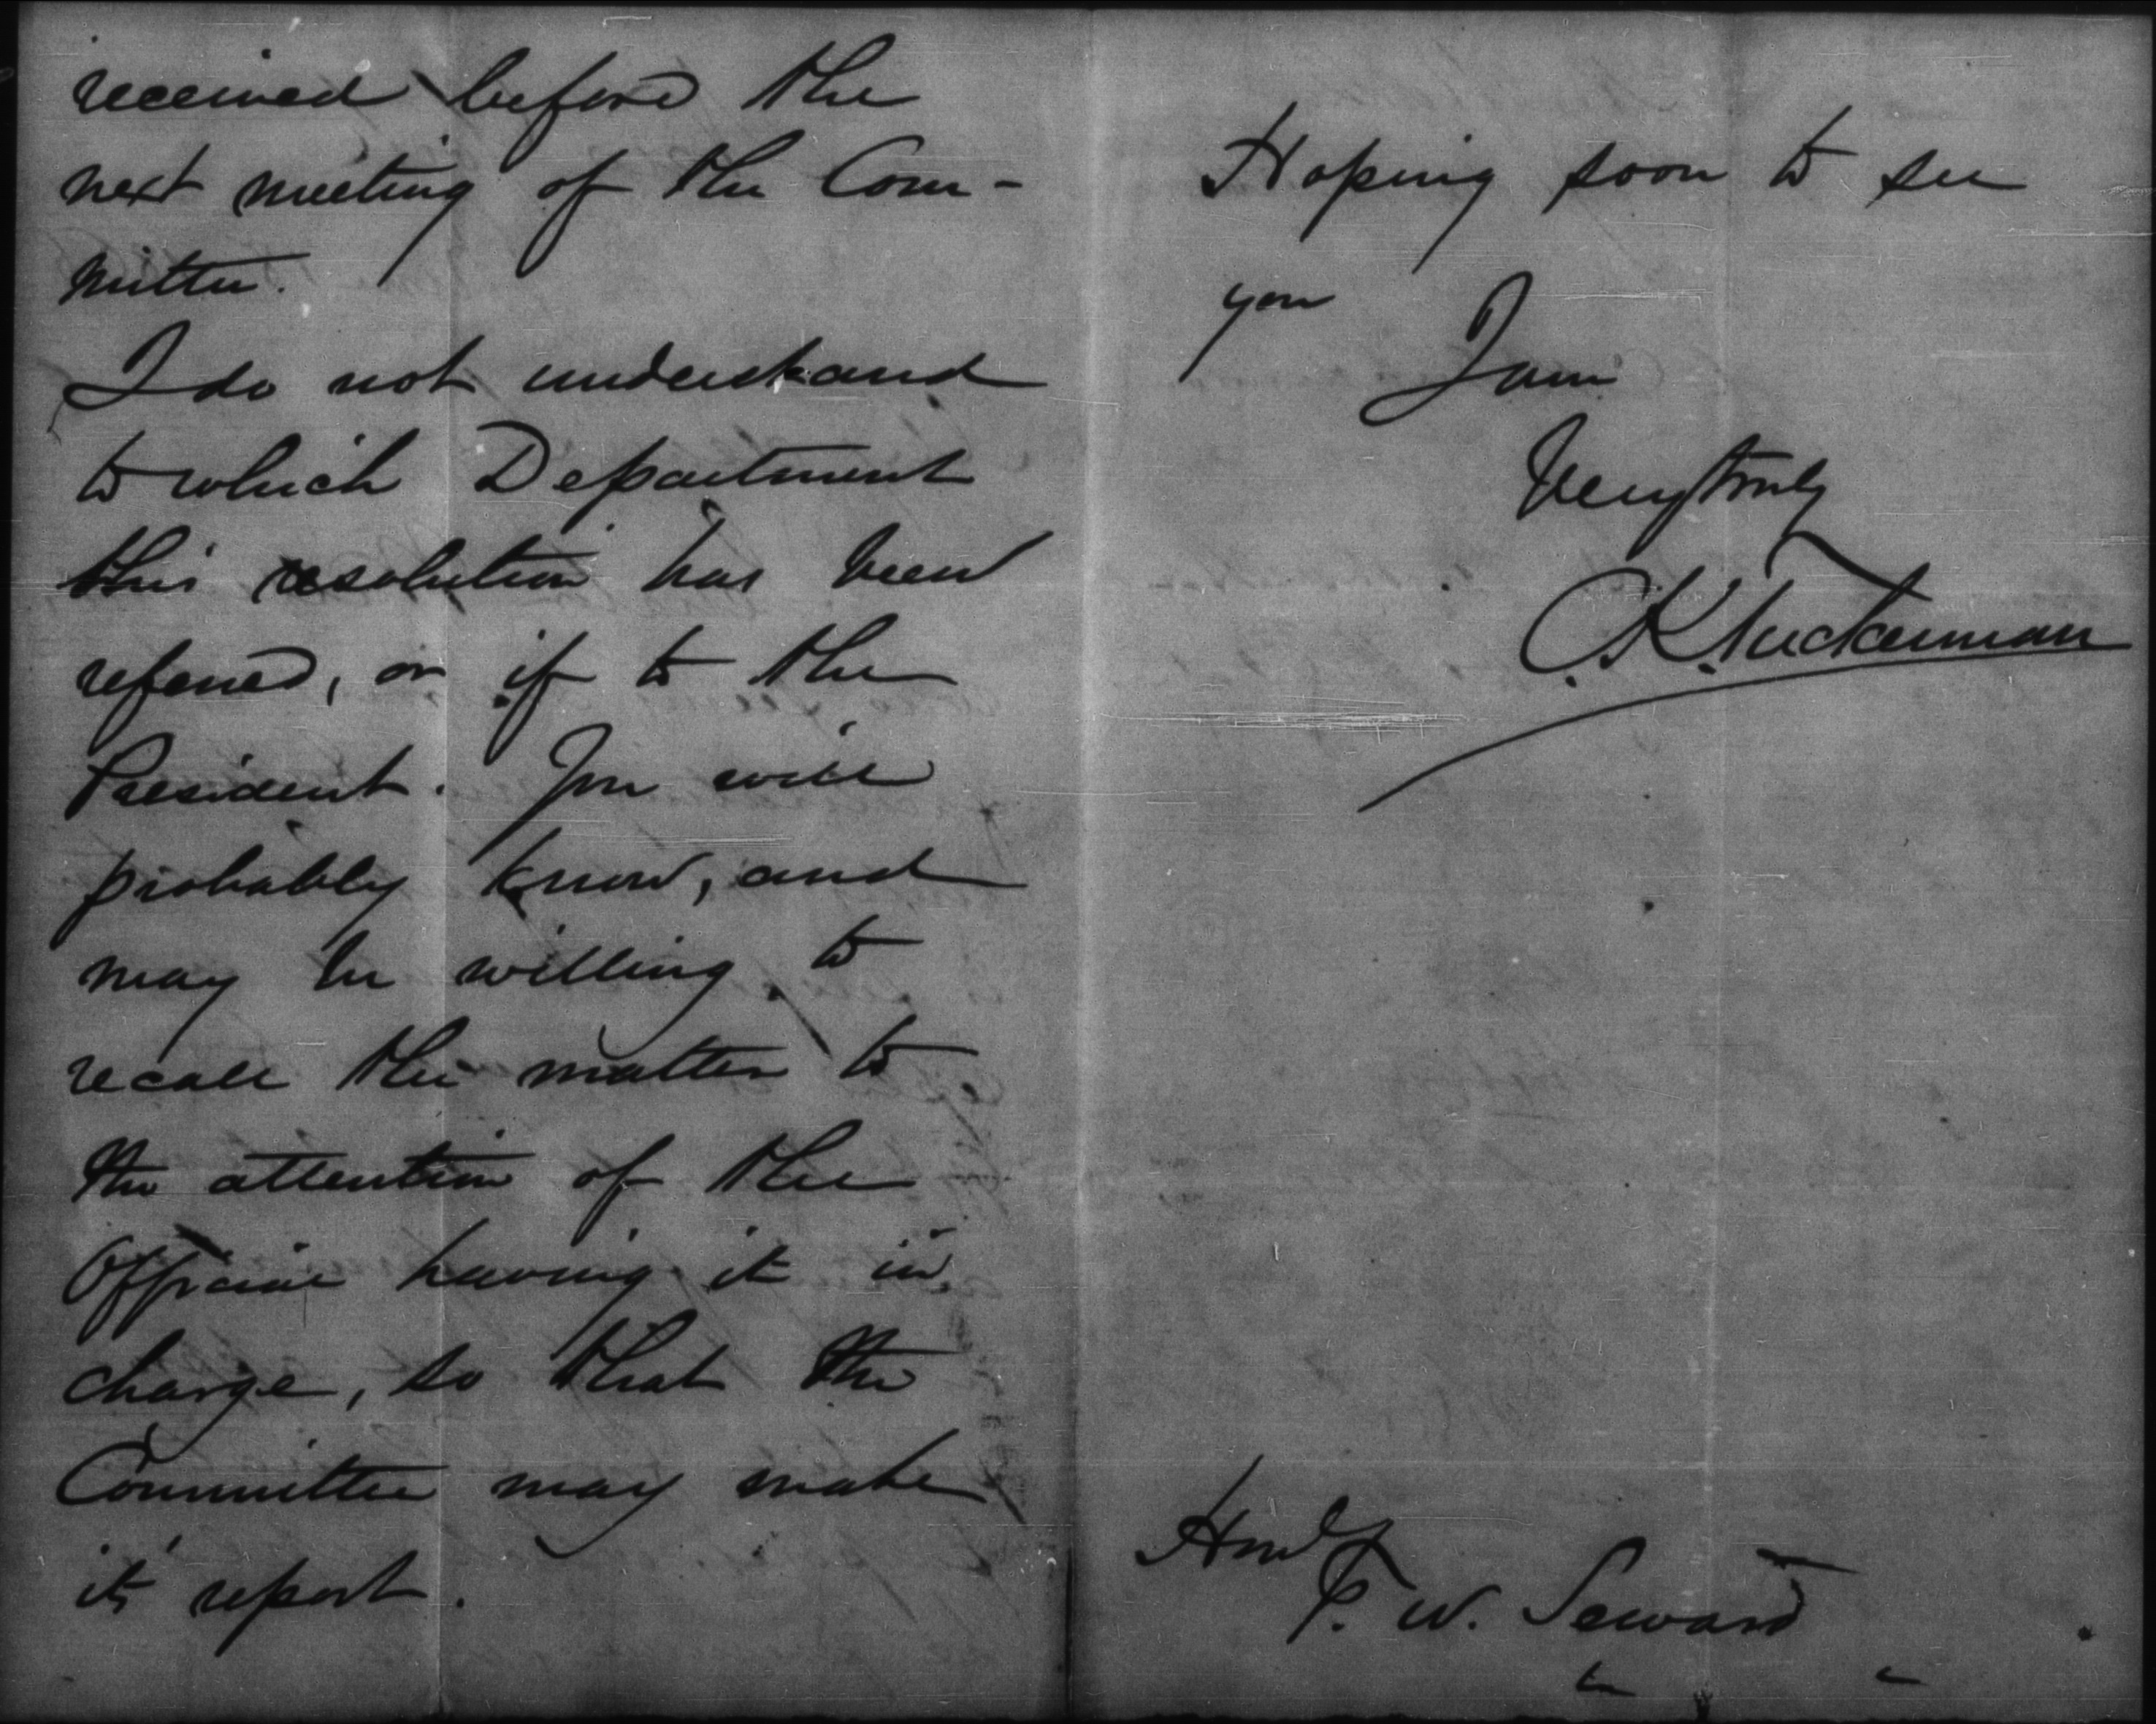 received before the
next meeting of the Com-
mittee.
I do not understand
to which Department
this resolution has been
referred, or if to the
President. You will
probably know, and
may be willing to
recall the matter to
the attention of the
Official having it in
charge, so that the
Committee may make
its report.
Hoping soon to see
you
I am
Very truly
C. K. Tuckerman
Hon
F. W. Seward